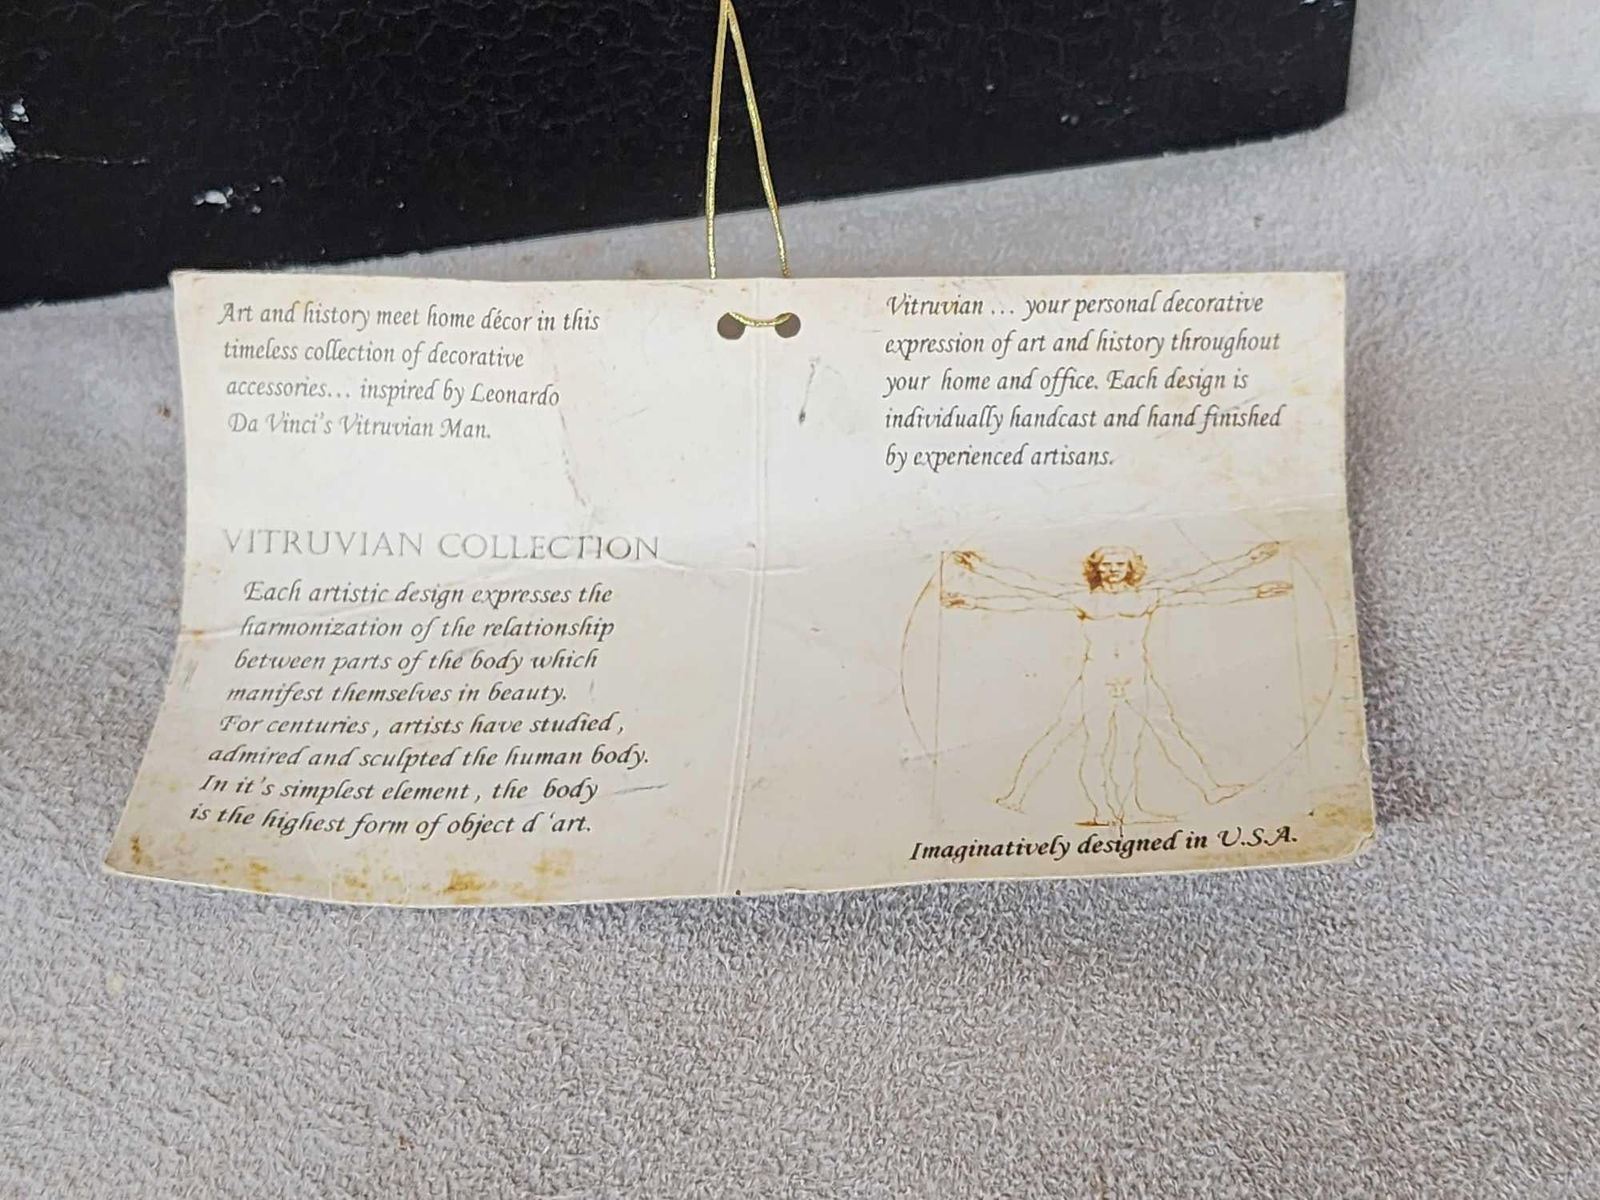 Art and history meet home décor in this
timeless collection of decorative
accessories... inspired by Leonardo
Da Vinci's Vitruvian Man.
VITRUVIAN COLLECTION
Each artistic design expresses the
harmonization of the relationship
between parts of the body which
manifest themselves in beauty.
For centuries, artists have studied,
admired and sculpted the human body.
In it's simplest element, the body
is the highest form of object d 'art.
Vitruvian ... your personal decorative
expression of art and history throughout
your home and office. Each design is
individually handcast and hand finished
by experienced artisans.
Imaginatively designed in U.S.A.